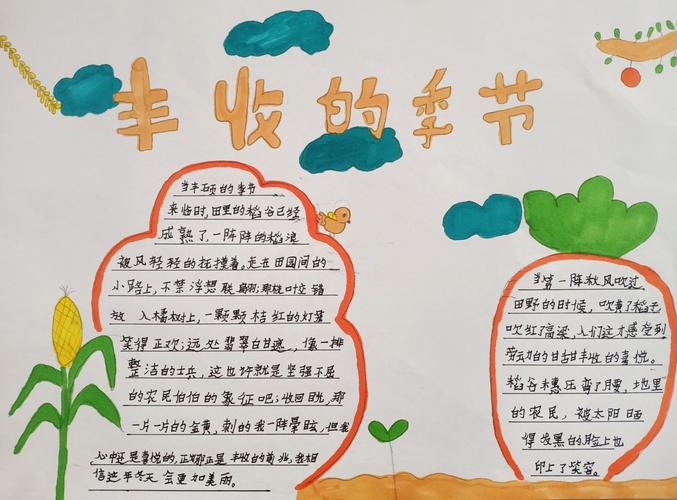 丰收的季节
当丰硕的季节
来临时,田里的稻谷已经
成熟了一阵阵的稻浪
被风轻轻的抚摸着。走在田园间的
小路上,不禁浮想联翩;那枝叶交错
放入橘树上,一颗颗桔红的灯笼
笑得正欢;远处翡翠白甘遮,像一排
整洁的士兵,这也许就是坚强不屈
的农民伯伯的象征吧;收回目光,那
一片一片的金黄,刺的我一阵晕眩,但我
心中还是喜悦的,正那正是丰收的前兆,我相
信这年冬天会更加美丽。
当第一阵秋风吹过
田野的时候,吹黄了稻子
吹红了高粱,人们这才感受到
劳动的甘甜丰收的喜悦。
稻谷穗压弯了腰,地里
的农民,被太阳晒
得发黑的脸上也
印上了笑容。